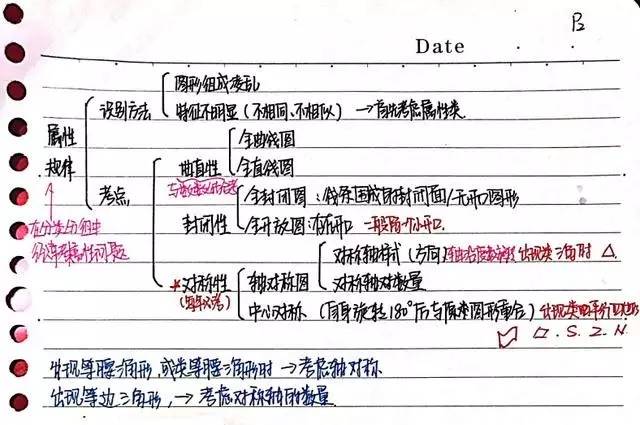 B
Date
图形组成凌乱
识别方法
特征不明显(不相同、不相似) → 首先考虑属性类
属性
规律
全曲线图
曲直性
全直线图
考点
全封闭图:线条围成的封闭面/无开口图形
封闭性
全开放图:有开口 一般留一个小开口.
在分类分组中
经常考属性问题
对称轴样式(方向) 出现类三角时 △.
*对称性
轴对称图
对称轴对数量
(每年必考)
中心对称(自身旋转180°后与原来图形重合) 出现类平行四边形
▱. S. Z. N.
出现等腰三角形,或类等腰三角形时 → 考虑轴对称
出现等边三角形, → 考虑对称轴的数量